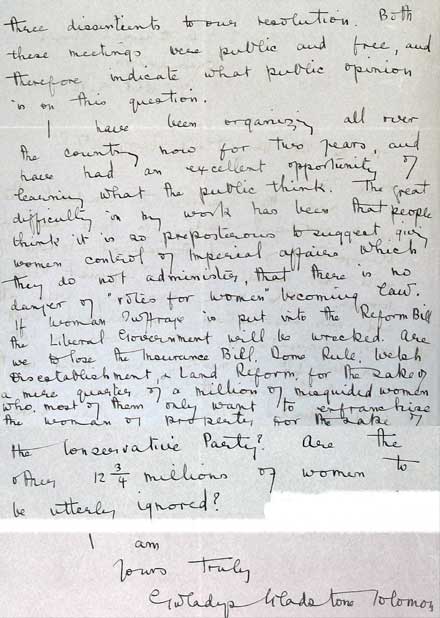 three dissentients to our resolution. Both
these meetings were public and free, and
therefore indicate what public opinion
is on this question.
I have been organizing all over
the country now for two years, and
have had an excellent opportunity of
learning what the public think. The great
difficulty in my work has been that people
think it is so preposterous to suggest giving
women control of Imperial affairs which
they do not administer, that there is no
danger of "votes for women" becoming law.
If Woman Suffrage is put into the Reform Bill
the Liberal Government will be wrecked. Are
we to lose the Insurance Bill, Home Rule, Welsh
disestablishment, & Land Reform, for the sake of
a mere quarter of a million of misguided women
who, most of them only want to enfranchise
the woman of property for the sake of
the Conservative Party? Are the
other 12 3/4 millions of women to
be utterly ignored?
I am
Yours Truly
Gwladys Gladstone Solomon